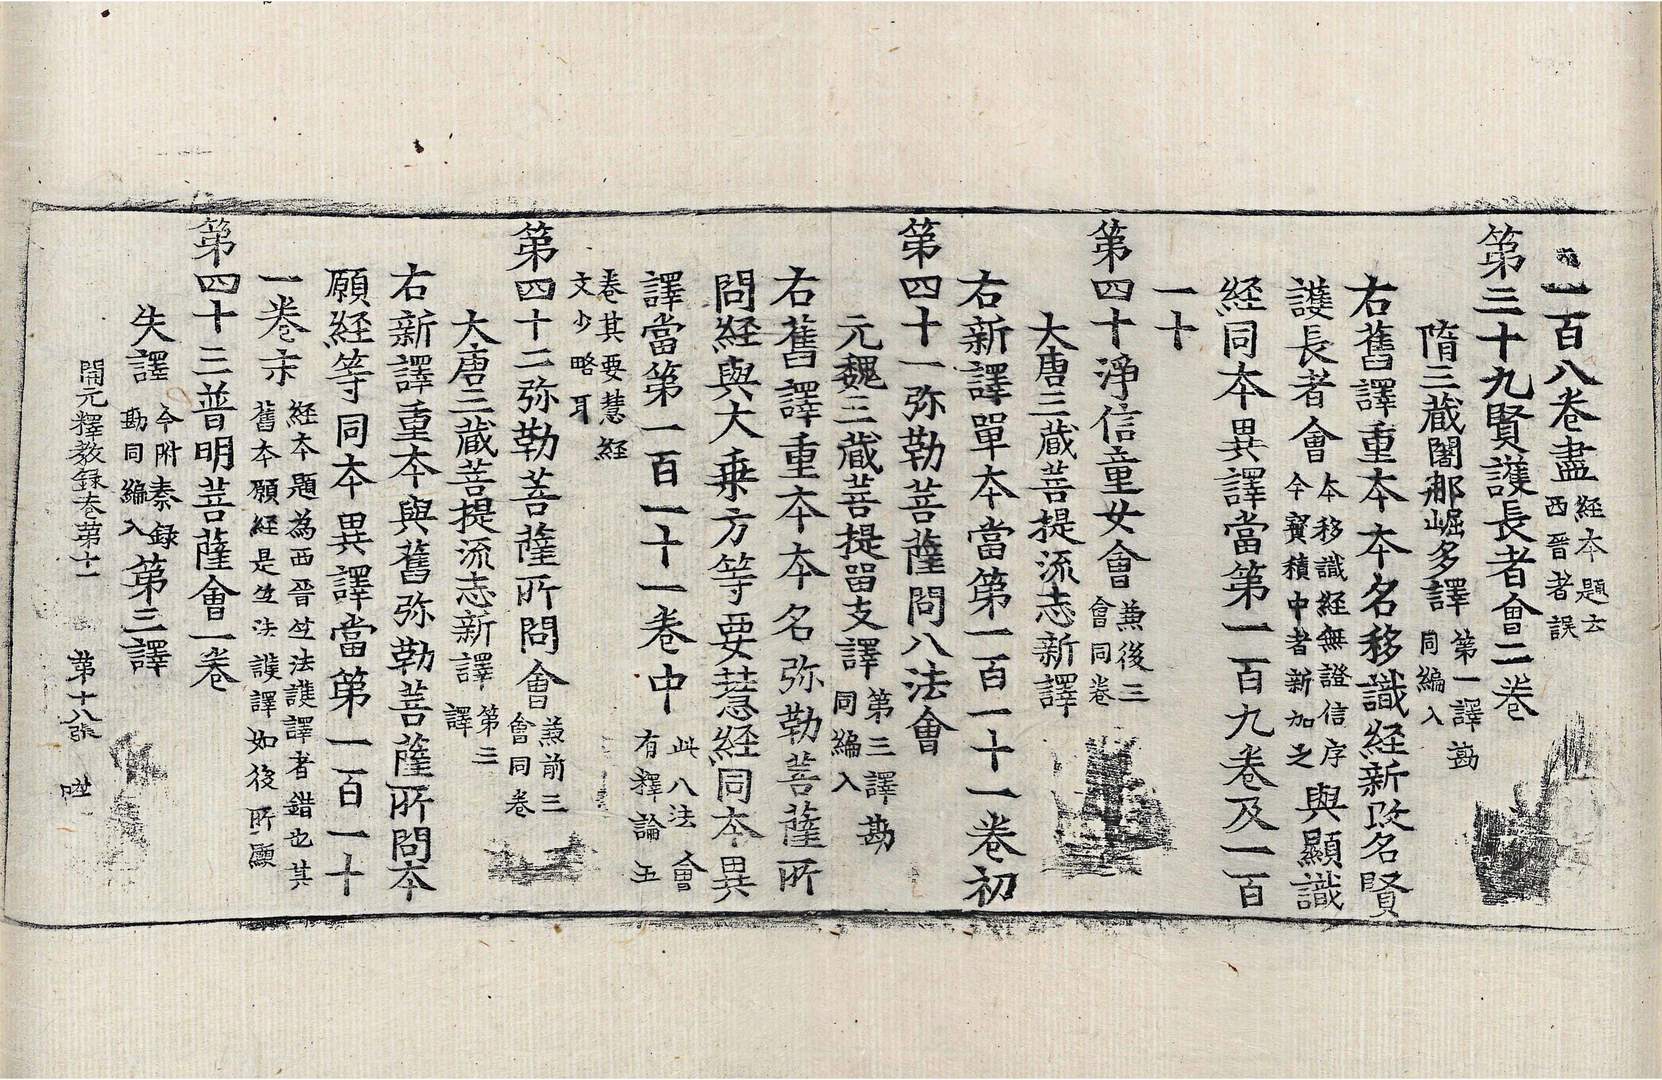 一百八卷盡 經本題云西晉者誤
第三十九賢護長者會二卷
隋三藏闍那崛多譯 第一譯勘同編入
右舊譯重本本名移識經新改名賢
護長者會 本移識經無證信序今寶積中者新加之 與顯識
經同本異譯當第一百九卷及一百
一十
第四十淨信童女會 兼後三會同卷
大唐三藏菩提流志新譯
右新譯單本當第一百一十一卷初
第四十一弥勒菩薩問八法會
元魏三藏菩提留支譯 第三譯勘同編入
右舊譯重本本名弥勒菩薩所
問經與大乗方等要慧經同本異
譯當第一百一十一卷中 此八法會有釋論五
卷其要慧經文少略耳
第四十二弥勒菩薩所問會 兼前三會同卷
大唐三藏菩提流志新譯 第三譯
右新譯重本與舊弥勒菩薩所問本
願經等同本異譯當第一百一十
一卷末 經本題為西晉竺法護譯者錯也其舊本願經是竺法護譯如後所顯
第四十三普明菩薩會一卷
失譯 今附秦録勘同編入 第三譯
開元釋教録卷第十一 第十八張